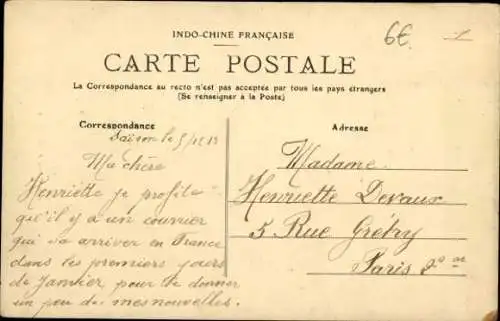 INDO-CHINE FRANÇAISE
6€
CARTE POSTALE
La Correspondance au recto n'est pas acceptée par tous les pays étrangers
(Se renseigner à la Poste)
Correspondance
Adresse
Saigon le 5/12
Ma chère
Henriette je profite
qu'il y a un courrier
qui va arriver en France
dans les premiers jours
de Janvier pour te donner
un peu de mes nouvelles.
Madame
Henriette Devaux
5 Rue Grétry
Paris 2º ar